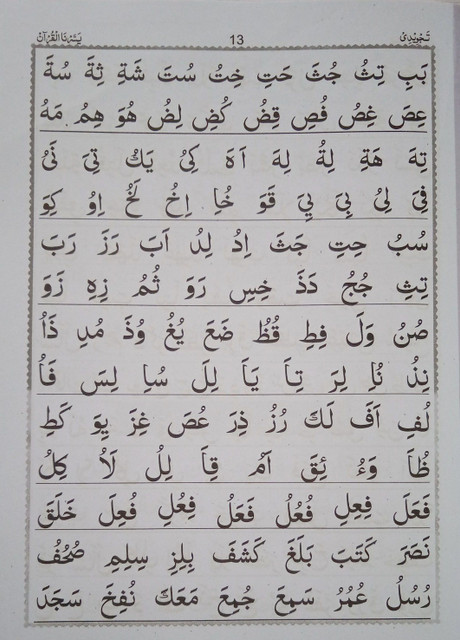 تَجْوِيْدِىْ 13 يَسَّرْنَا الْقُرْآنْ
بَبِ تِثُ جُثَ حَتِ خِتُ سُتَ شَةِ ثِةَ سُةَ
عِصَ غِصُ فُصِ قِضُ كُضِ لِضُ هُوَ هِمُ مَهُ
تِهَ هَةِ لِةُ لِهَ اَهَ كِىُ يَكُ تِىَ نَىُ
فِىَ لِىُ بِىَ يِىَ قَوَ خُاِ اِخُ لَخُ اِوُ كِوِ
سُبُ حِتِ جَثَ اِدُ لِدُ اَبَ رَزَ رَبَ
تِثِ جُجُ دَذَ خِسِ رَوَ ثُمُ زِهِ زَوَ
صُنُ وَلَ فِطِ قُظُ ضَعَ يُغُ وُذَ مُدِ ذَاُ
نِذُ نُاِ لِرَ تِاَ يَاَ لِلَ سُاِ لِسَ فَاُ
لُفِ اَفَ لَكَ رُزُ ذِرَ عُصَ غِزَ يِوَ كَطِ
ظُاَ وَءُ ئِقَ اَمُ قِاَ لِلُ لَاُ كِلُ
فَعَلَ فِعِلِ فُعُلُ فَعَلُ فِعُلِ فُعِلَ خَلَقَ
نَصَرَ كَتَبَ بَلَغَ كَشَفَ بِلِزِ سِلِمِ صُحُفُ
رُسُلُ عُمُرُ سَمِعَ جُمِعَ مَعَكَ نُفِخَ سَجَدَ